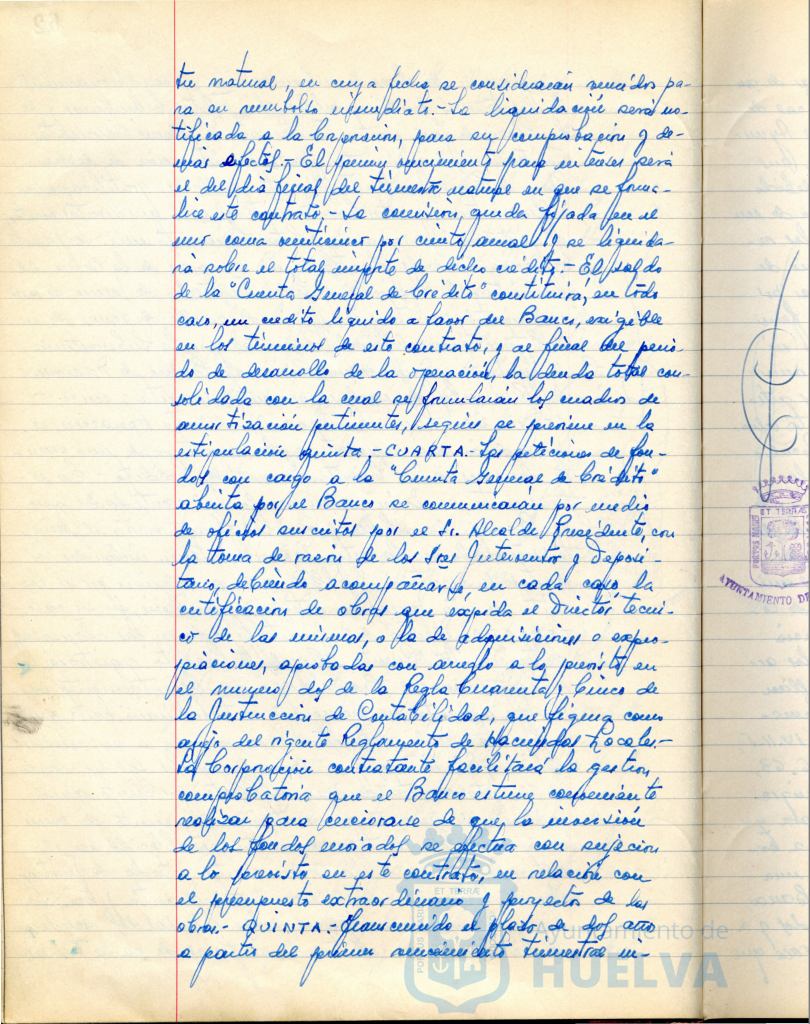 tre natural, en cuya fecha se considerarán vencidos pa-
ra su reembolso inmediato.- La liquidación será no-
tificada a la Corporación, para su comprobación y de-
más efectos.- El primer vencimiento para intereses será
el del día final del trimestre natural en que se forma-
lice este contrato.- La comisión, queda fijada en el
uno coma veinticinco por ciento anual y se liquida-
rá sobre el total importe de dicho crédito.- El saldo
de la "Cuenta General de Crédito" constituirá, en todo
caso, un crédito líquido a favor del Banco, exigible
en los términos de este contrato, y al final del perio-
do de desarrollo de la operación, la deuda total con-
solidada con la cual se formularán los cuadros de
amortización pertinentes, según se previene en la
estipulación quinta.- CUARTA.- Las peticiones de fon-
dos con cargo a la "Cuenta General de Crédito"
abierta por el Banco se comunicarán por medio
de oficios suscritos por el Sr. Alcalde Presidente, con
la toma de razón de los Sres Interventor y Deposi-
tario, debiendo acompañarse, en cada caso, la
certificación de obras que expida el Director técni-
co de las mismas, o la de adquisiciones o expro-
piaciones, aprobadas con arreglo a lo previsto en
el numero dos de la Regla Cuarenta y Cinco de
la Instrucción de Contabilidad, que figura como
anejo, del vigente Reglamento de Haciendas Locales.-
La Corporación contratante facilitará la gestión
comprobatoria que el Banco estime conveniente
realizar para cerciorarse de que la inversión
de los fondos enviados se efectúa con sujeción
a lo previsto en este contrato, en relación con
el presupuesto extraordinario y proyectos de las
obras.- QUINTA.- Transcurrido el plazo de dos años
a partir del primer vencimiento trimestral in-
ET TERRÆ
AYUNTAMIENTO DE
Ayuntamiento de
HUELVA